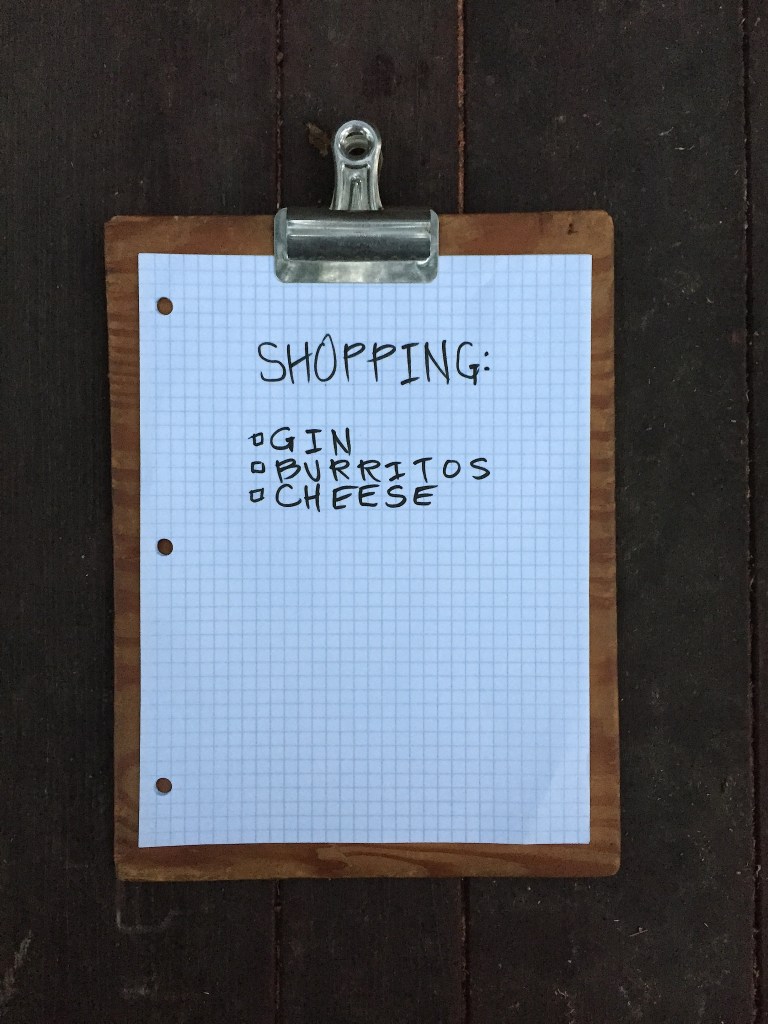 SHOPPING:
▫GIN
▫BURRITOS
▫CHEESE